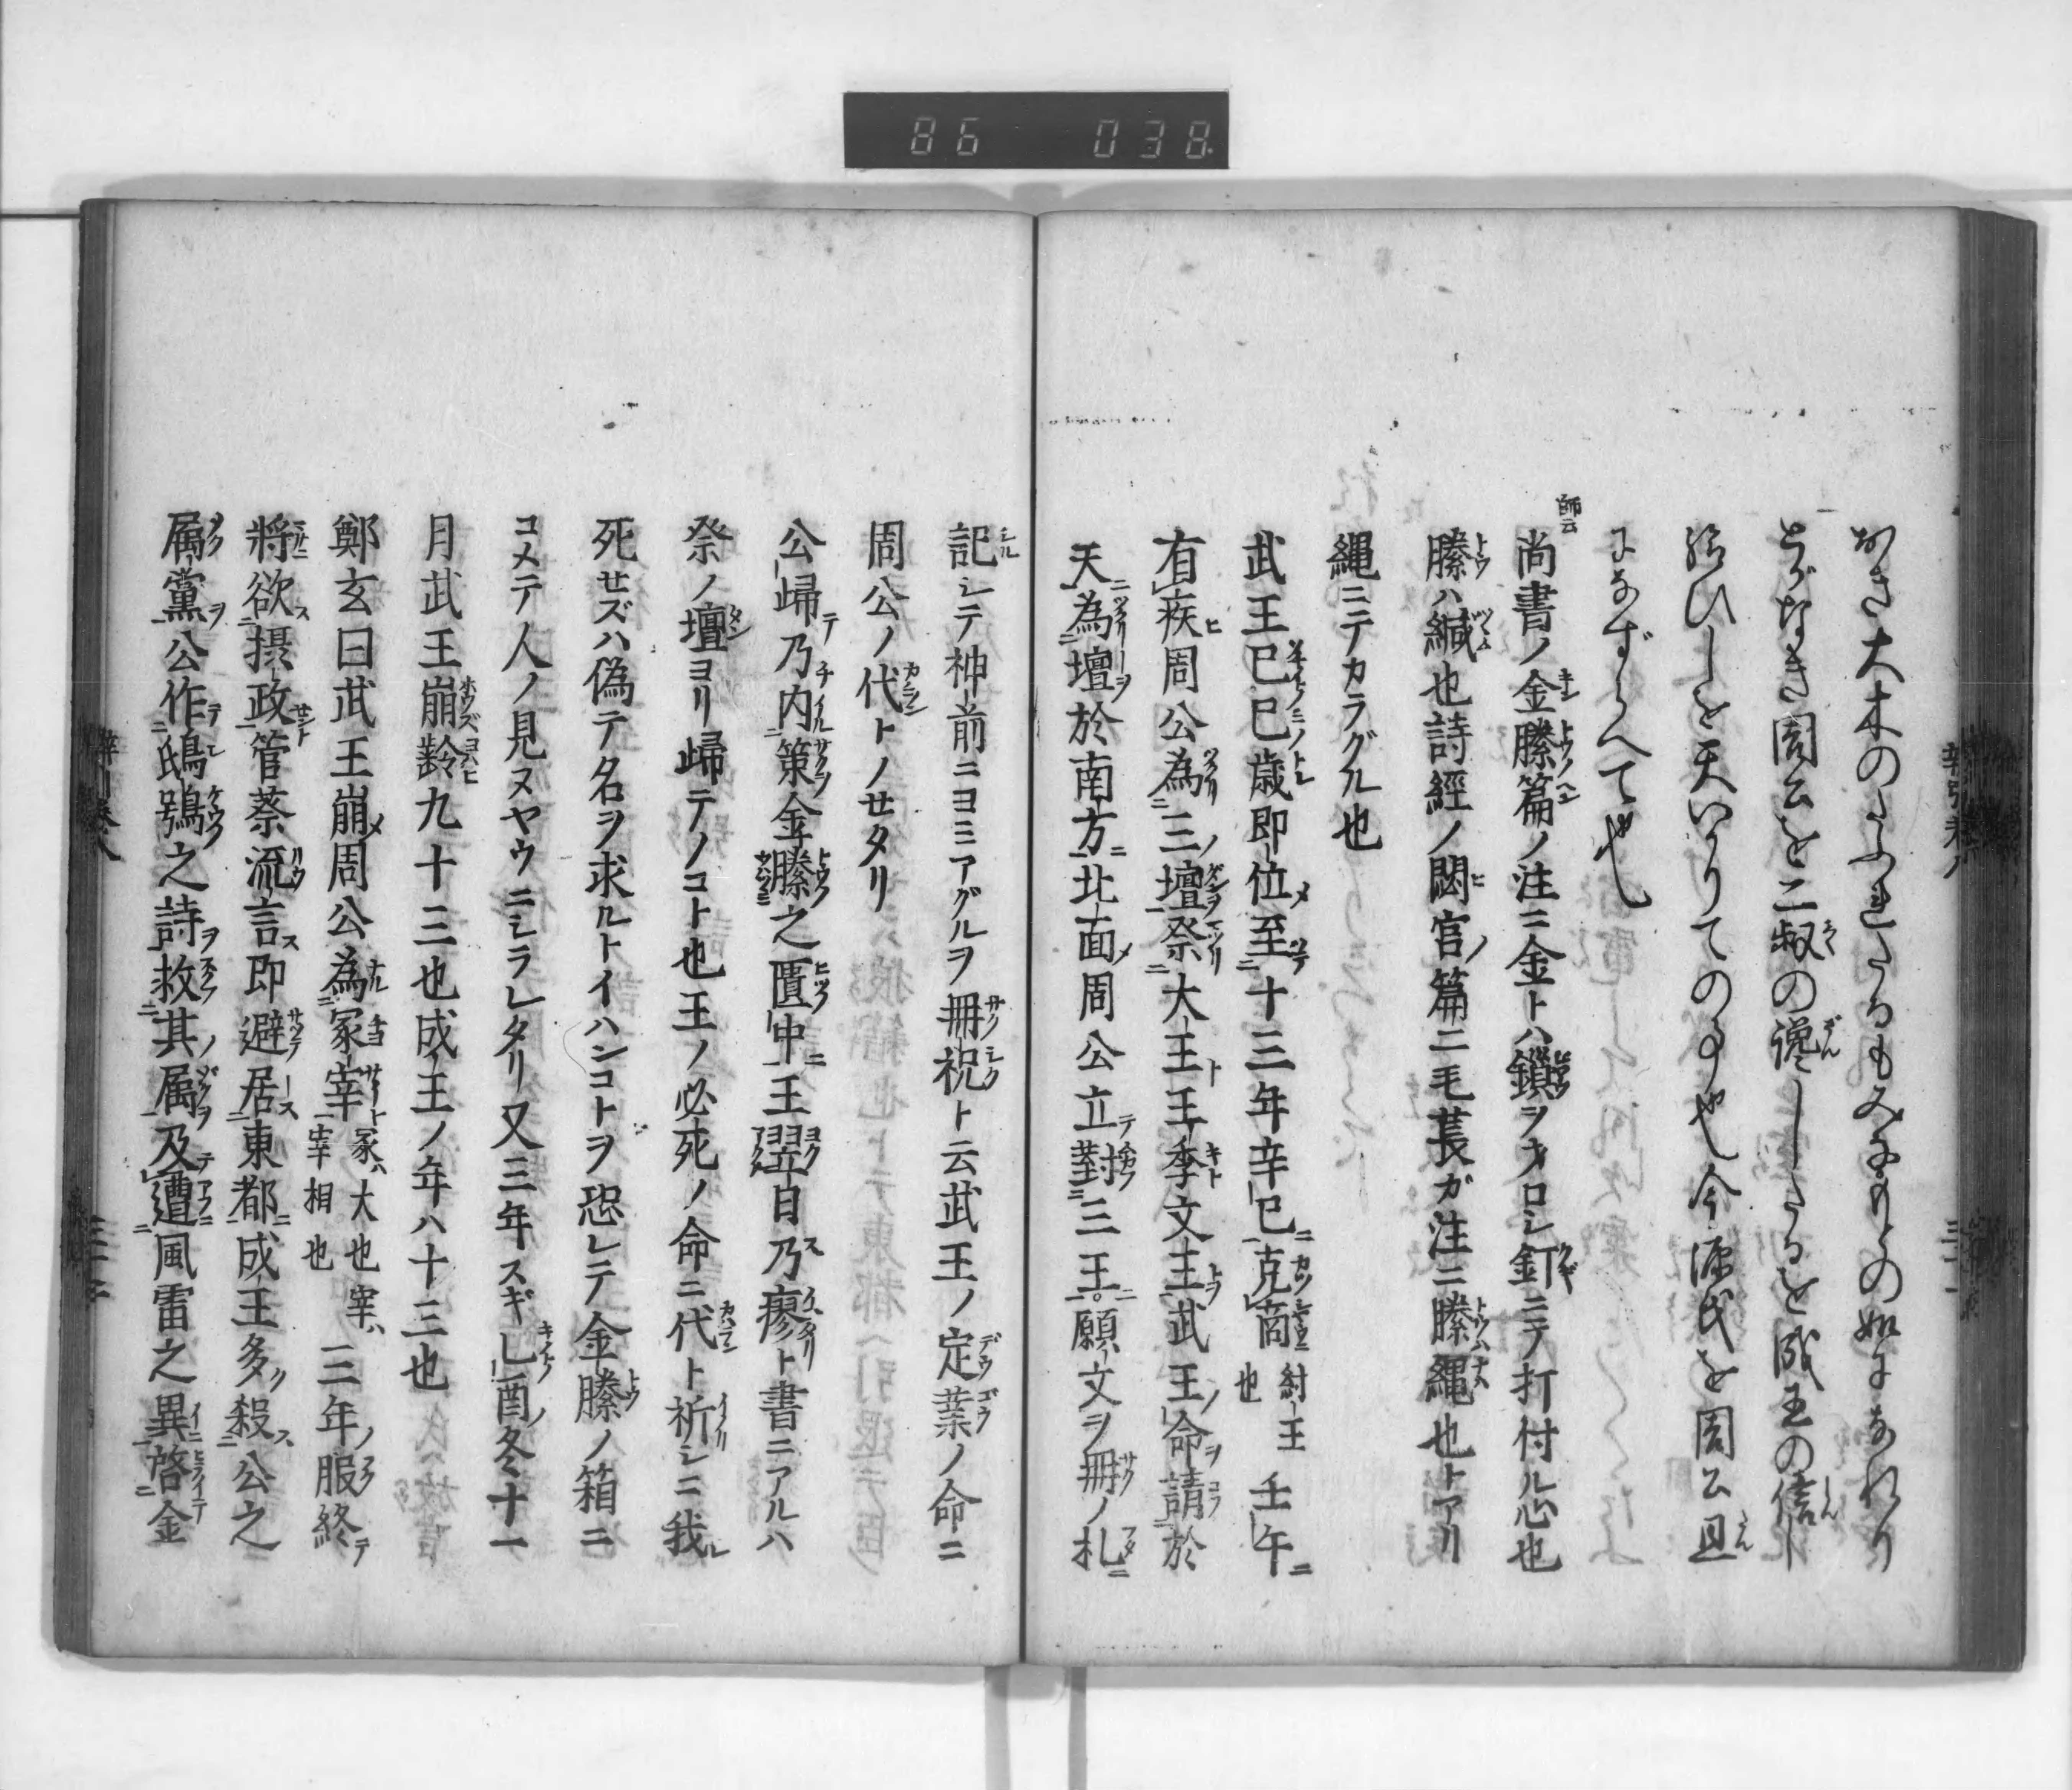 86 038
おき大木のたふれたるもみなもとの如になれり
とがなき周公を二叔の讒したるを成王の信し
給ひしを天いかりての事也今源氏を周公旦
になずらへて也
師云
尚書ノ金縢篇ノ注ニ金トハ鏁ヲオロシ釘ニテ打付ル心也
縢ハ緘也詩經ノ閟宮ノ篇ニ毛萇ガ注ニ縢縄也トアリ
縄ニテカラグル也
武王己巳歳即位至十三年辛巳克商紂王也壬午
有疾周公為三壇祭大王王季文王武王命請於
天為壇於南方北面周公立對三王願文ヲ冊ノ札ニ
記シテ神前ニヨミアグルヲ冊祝ト云武王ノ定業ノ命ニ
周公ノ代トノセタリ
公歸乃内策金縢之匱中王翌日乃瘳ト書ニアルハ
祭ノ壇ヨリ歸テノコト也王ノ必死ノ命ニ代ト祈シニ我
死セズハ偽テ名ヲ求ルトイハンコトヲ恐レテ金縢ノ箱ニ
コメテ人ノ見ヌヤウニシラレタリ又三年スギ乙酉ノ冬十一
月武王崩齢九十三也成王ノ年ハ十三也
鄭玄曰武王崩周公為冢宰冢ハ大也宰ハ宰相也三年服終
將欲摂政管蔡流言即避居東都成王多殺公之
属黨公作鴟鴞之詩救其属及遭風雷之異啓金